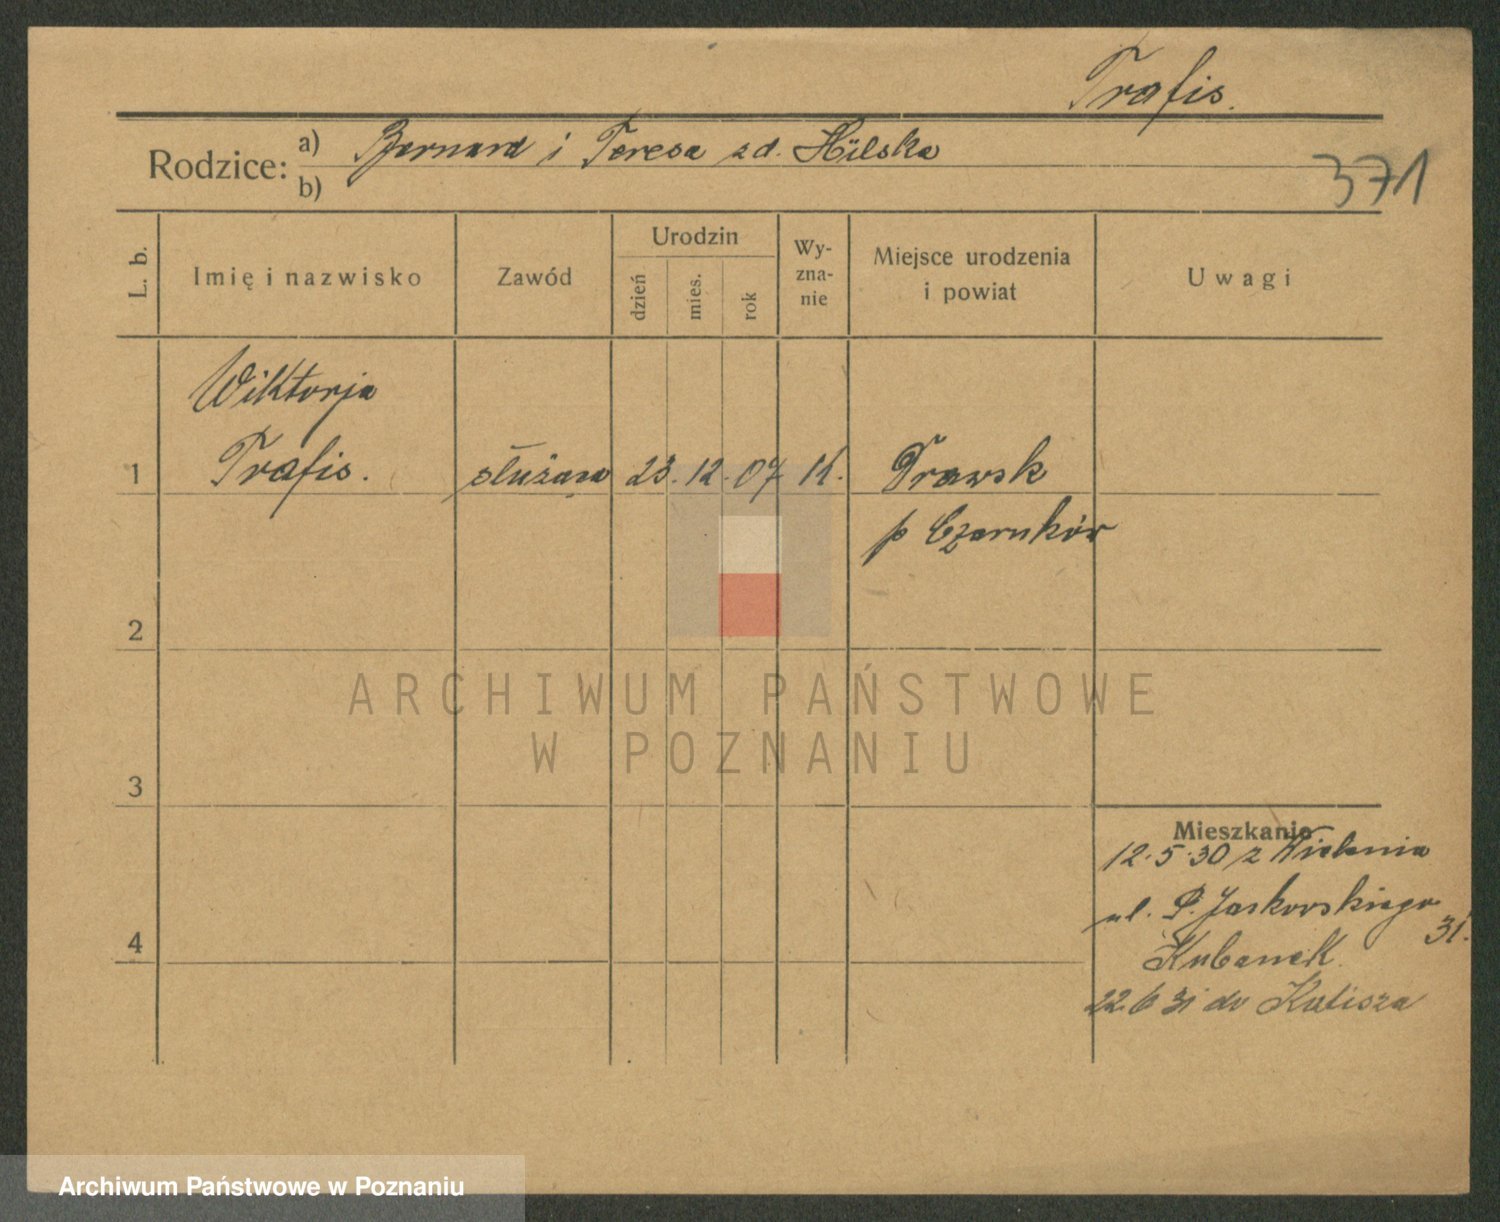 Trafis.
Rodzice: a) Bernard i Teresa zd. Hülska
b)
371
L. b.
Imię i nazwisko
Zawód
Urodzin
dzień
mies.
rok
Wy-
zna-
nie
Miejsce urodzenia
i powiat
Uwagi
Wiktorja
1 Trafis. służąca 23. 12. 07 K. Drawsk
p Czarnków
2
ARCHIWUM PAŃSTWOWE
W POZNANIU
3
Mieszkanie
12.5.30 z Wielenia
ul. P. Jaskowskiego
31.
4
Kubanek
22 6 31 do Kalisza
Archiwum Państwowe w Poznaniu